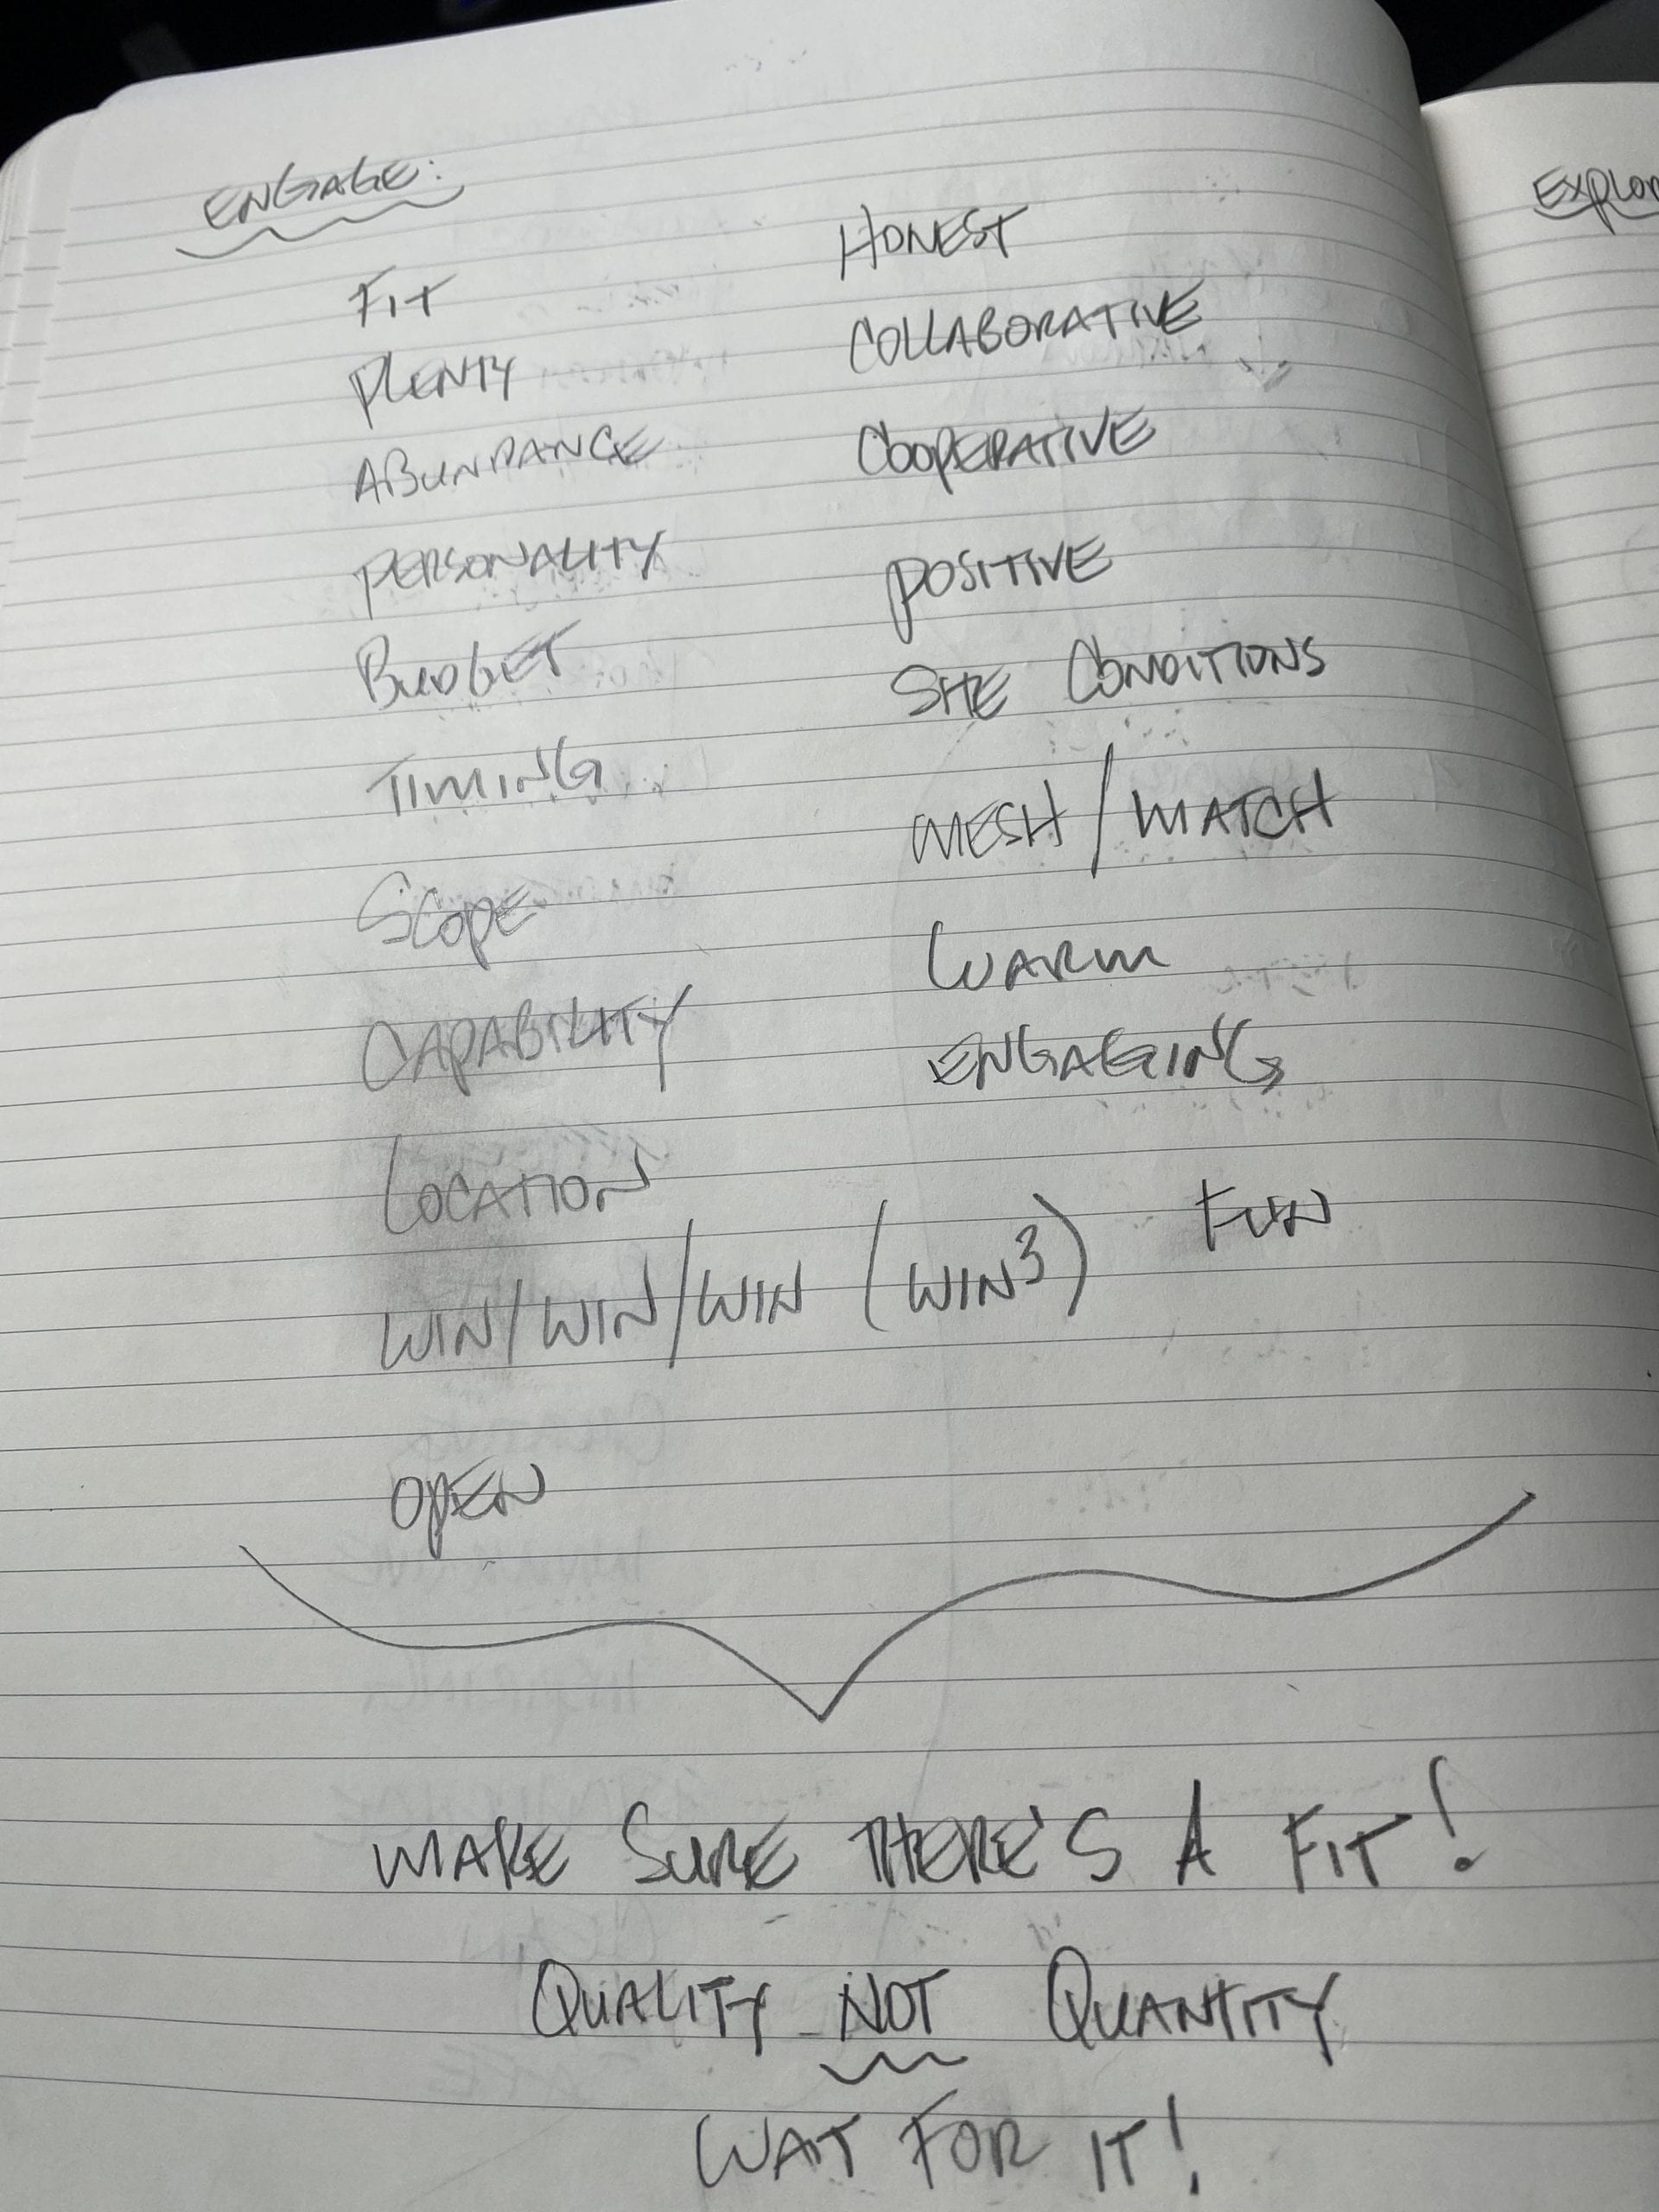 ENGAGE:
FIT
PLENTY
ABUNDANCE
PERSONALITY
BUDGET
TIMING
SCOPE
CAPABILITY
LOCATION
WIN/WIN/WIN (WIN³)
OPEN
HONEST
COLLABORATIVE
COOPERATIVE
POSITIVE
SITE CONDITIONS
MESH/MATCH
WARM
ENGAGING
FUN
MAKE SURE THERE'S A FIT!
QUALITY NOT QUANTITY
WAIT FOR IT!
EXPLOR